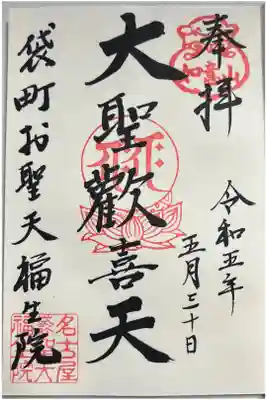 奉拝
如意山
令和五年
五月二十日
大聖歡喜天
袋町お聖天福生院
名古屋